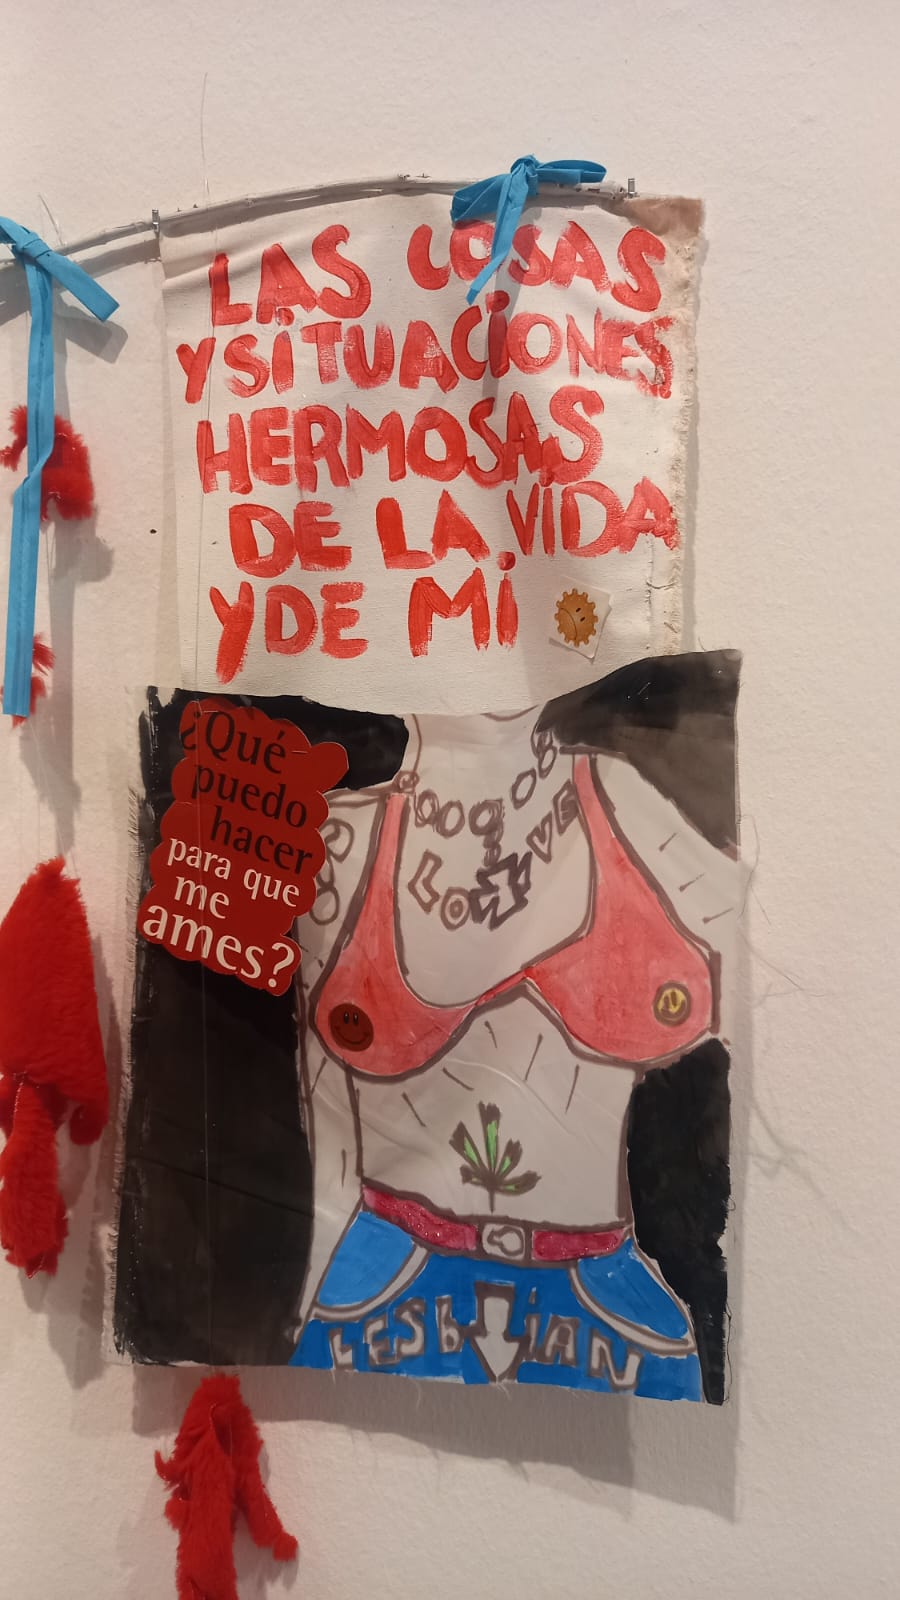 LAS COSAS
Y SiTUACiONES
HERMOSAS
DE LA ViDA
Y DE Mi
¿Qué
puedo
hacer
para que
me
ames?
LOVE
LESbiAN